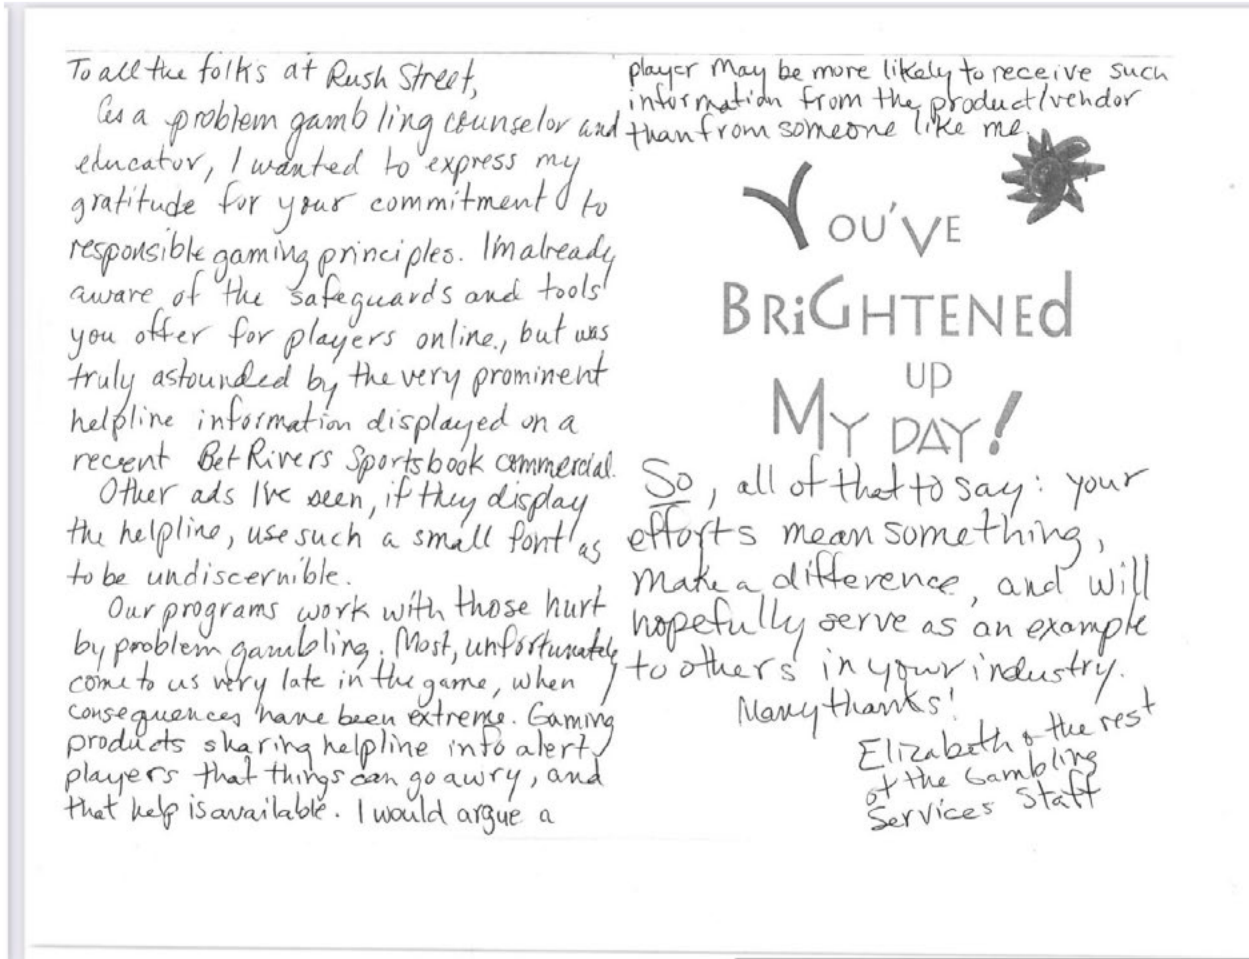 To all the folks at Rush Street,
As a problem gambling counselor and
educator, I wanted to express my
gratitude for your commitment to
responsible gaming principles. I'm already
aware of the safeguards and tools
you offer for players online, but was
truly astounded by the very prominent
helpline information displayed on a
recent BetRivers Sportsbook commercial.
Other ads I've seen, if they display
the helpline, use such a small font as
to be undiscernible.
Our programs work with those hurt
by problem gambling. Most, unfortunately
come to us very late in the game, when
consequences have been extreme. Gaming
products sharing helpline info alert
players that things can go awry, and
that help is available. I would argue a
player may be more likely to receive such
information from the product/vendor
than from someone like me.
YOU'VE
BRiGHTENEd
UP
MY DAY!
So, all of that to say: your
efforts mean something,
make a difference, and will
hopefully serve as an example
to others in your industry.
Many thanks!
Elizabeth & the rest
of the Gambling
Services Staff